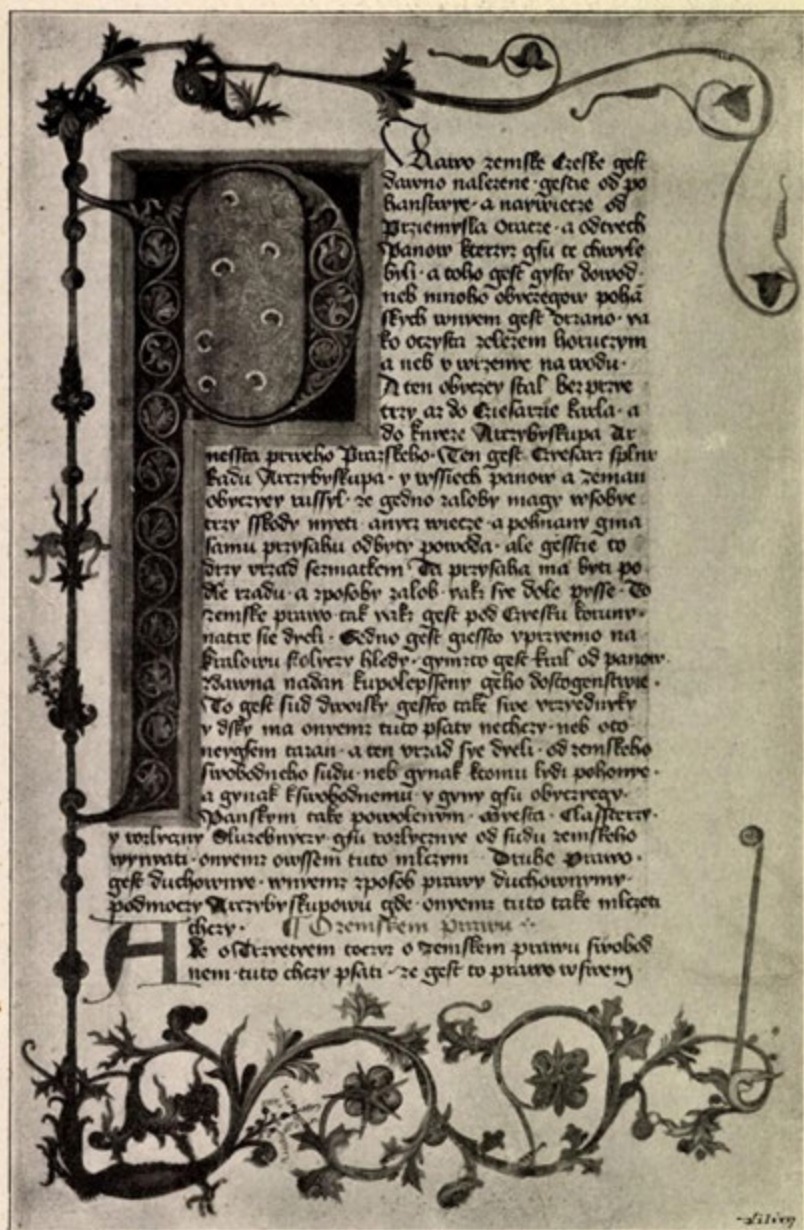 Prawo zemske Czeske gest
dawno nalezene · gestie od po
hanstwye · a naywiecze od
Prziemysla Oracze · a od tech
Panow kterzyz gsu te chwyle
byli · a toho gest gysty dowod ·
neb mnoho obyczegow poha
skych w nyem gest drzano · ya
ko oczysta zelezem horuczym
a neb v wrzenye na wodu ·
A ten obyczey stal bez prze
trzy az do Cziesarzie karla · a
do knyeze Arczybyskupa Ar
nessta prweho Prazskeho · Ten gest Cyesarz s plnu
Radu Arczybyskupa · y wssiech panow a zeman
obyczey russyl · ze gedno zaloby magy w sobye
trzy sskody myeti a nycz wiecze · a pohnany g
samu przysahu odbyty powoda · ale gesstie to
drzy vrzad
dle rzadu · a zposoby zalob · yakz sye dole pysse · To
zemske prawo tak yakz gest pod Czesku korunu ·
natre sie dyeli · Gedno gest giessto vprzyemo na
kralowu stolyczy hledy · gymzto gest kral od panow
zdawna nadan ku polepsseny geho dostogenstwie ·
To gest sud dworsky gessto take swe vrzednyky
y dsky ma o nyemz tuto psaty nechczy · neb o to
neygsem tazan · a ten vrzad sye dyeli · od zemskeho
swobodneho sudu · neb gynak k tomu lydi pohonye ·
a gynak k swobodnemu · y gyny gsu obyczegy ·
Panskym take powolenym · Myesta · Classtery ·
y rozlyczny Sluzebnyczy · gsu rozlycznye od sudu zemskeho
wynyati · o nyemz owssem tuto mlczym Druhe Prawo ·
gest duchownye · w nyemz zposob prawy duchownymy ·
pod moczy Arczybyskupowu gde · o nyemz tuto take mlczeti
chczy · ¶ O zemskem prawu
Ale o Trzetyem toczyz o zemskem prawu swobod
nem · tuto chczy psati · ze gest to prawo w swem